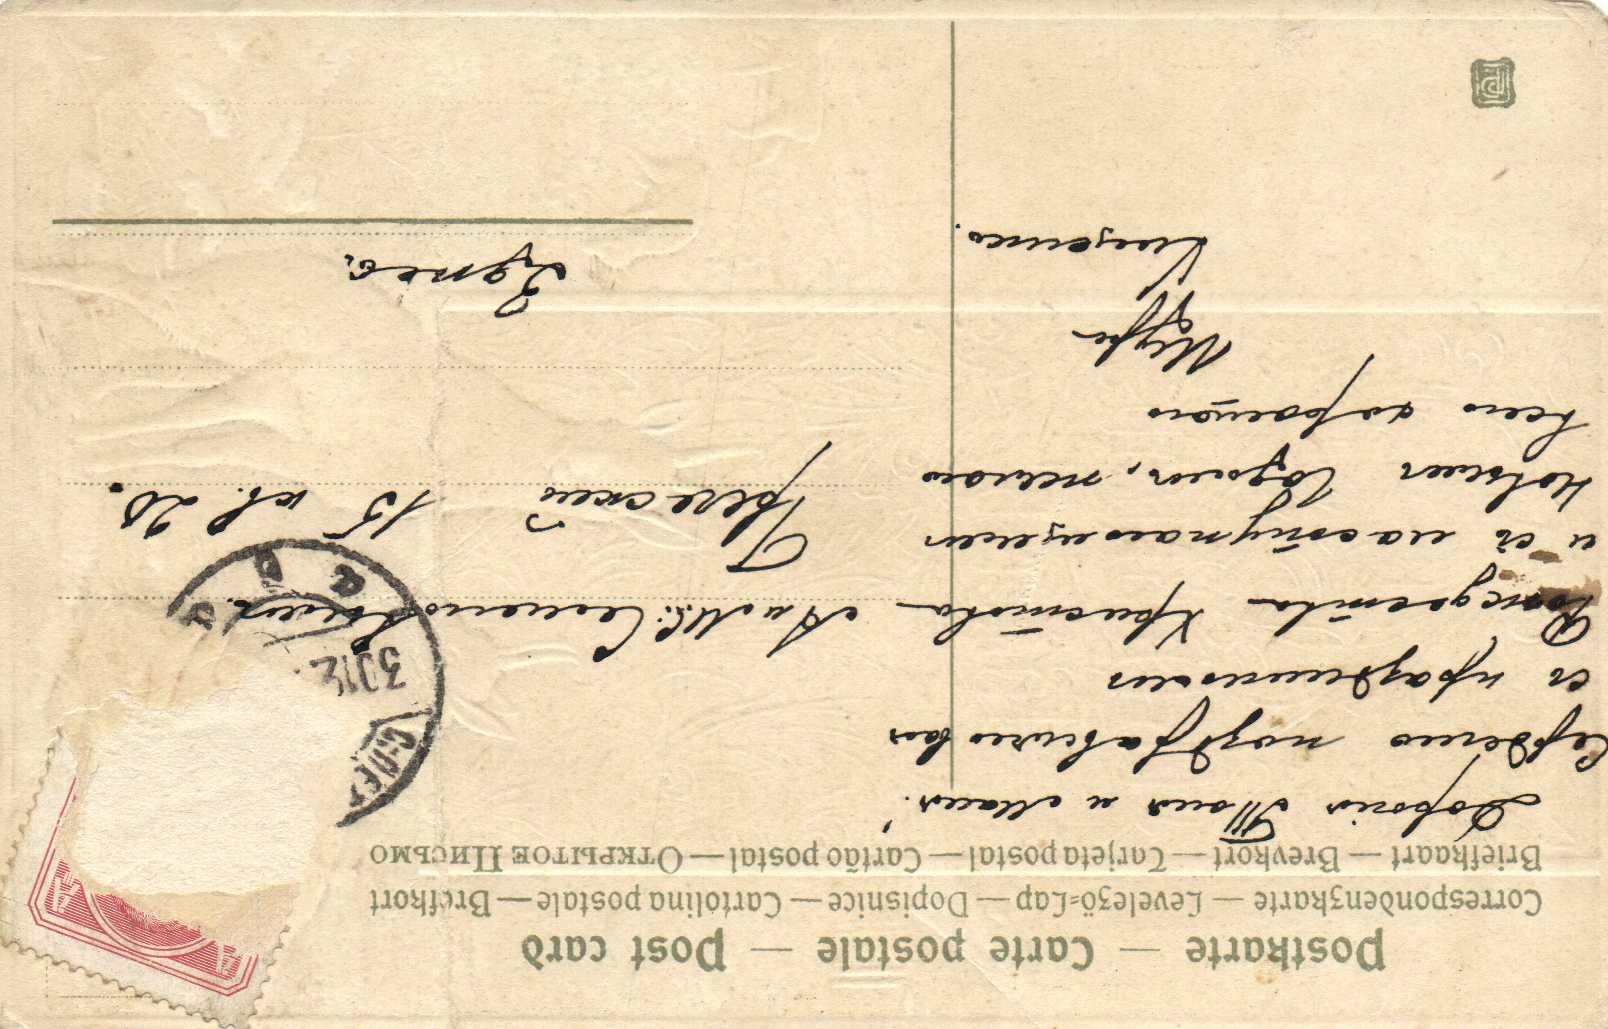 Postkarte — Carte postale — Post card
Correspondenzkarte — Levelező=Lap — Dopisnice — Cartolina postale — Brefkort
Briefkaart — Brevkort — Tarjeta postal — Cartão postal — Открытое Письмо
Дорогия Тоня и Маня!
Сердечно поздравляю вас
съ праздникомъ
Рождества Христова
и съ наступающимъ
новымъ годомъ, желаю
всего хорошаго
Шура
А. и М. Семеновымъ.
Греческий 15 кв. 20.
Здесь.
30.12